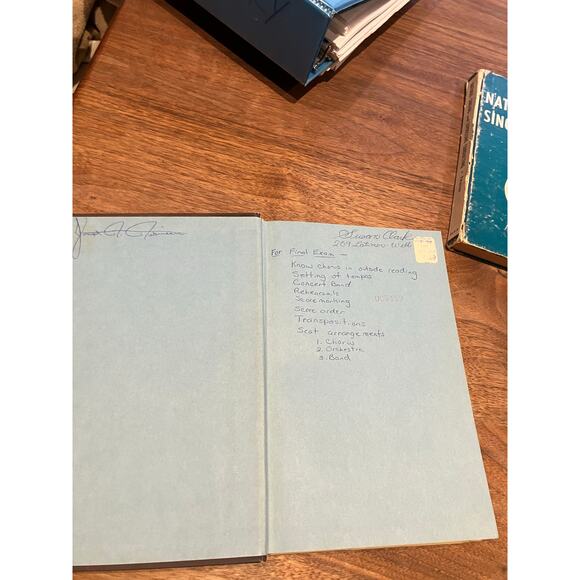 NAT
SING
Susan Clark
209 Latimer-Web
For Final Exam -
Know chorus in outside reading
Setting of tempos
Concert Band
Rehearsals
Score marking
Score order
Transpositions
Seat arrangements
1. Chorus
2. Orchestra
3. Band